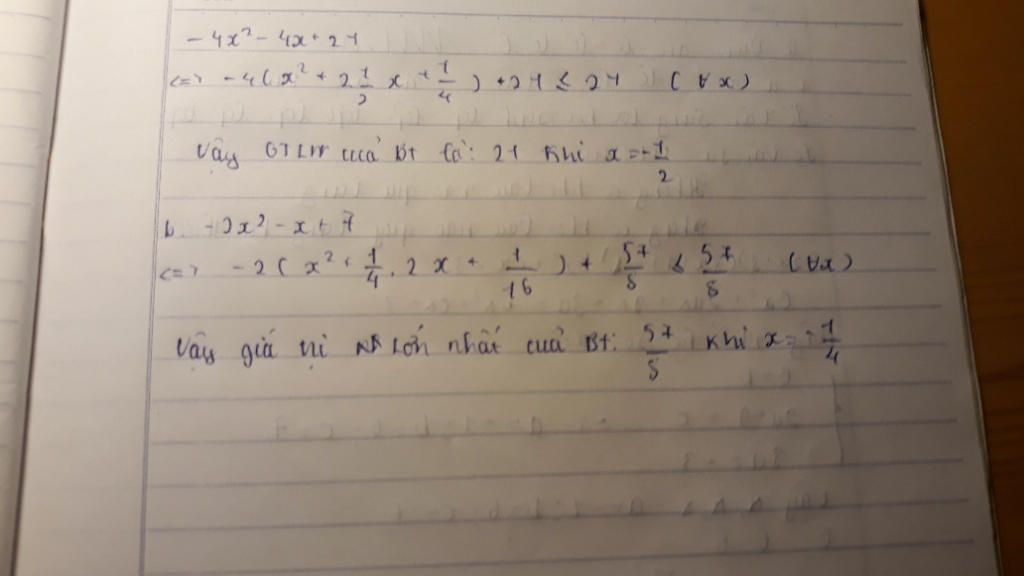 - 4x² - 4x + 21
<=> - 4 ( x² + 2 1/2 x + 1/4 ) + 21 ≤ 21 ( ∀ x )
Vậy GTLN của Bt là: 21 khi x = - 1/2
b. - 2x² - x + 7
<=> - 2 ( x² + 1/4 . 2 x + 1/16 ) + 57/8 ≤ 57/8 ( ∀x )
Vậy giá trị lớn nhất của Bt: 57/8 khi x = - 1/4